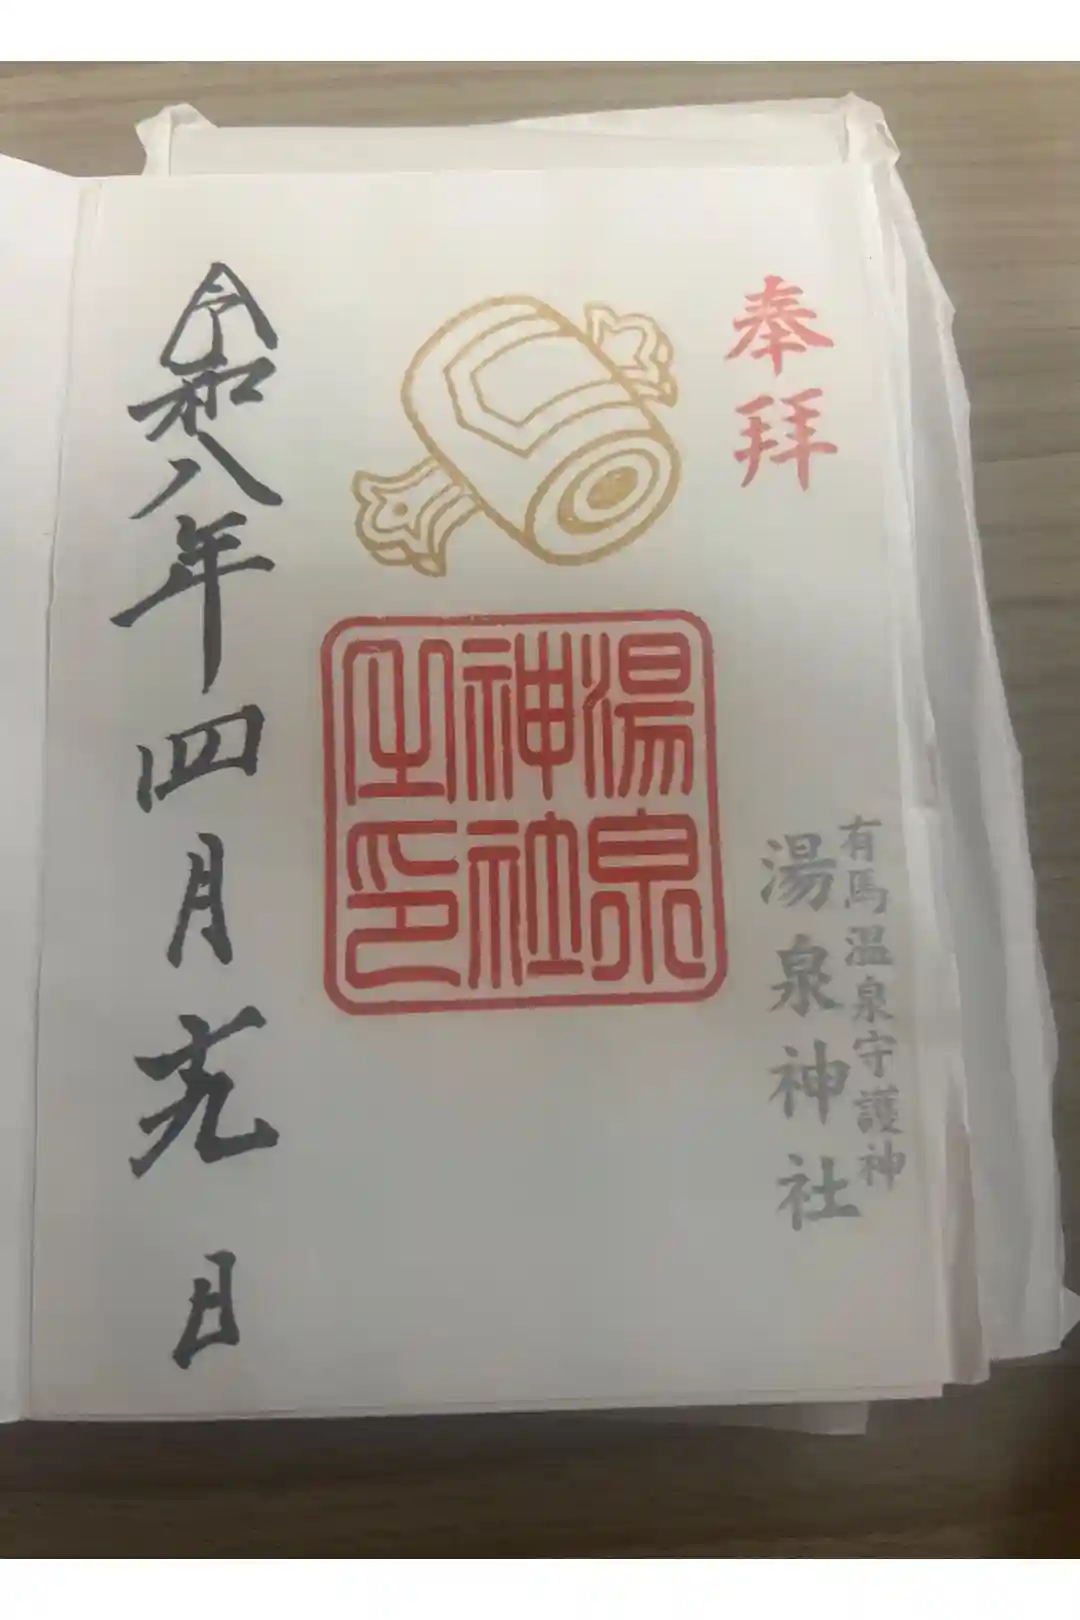 奉拝
有馬温泉守護神
湯泉神社
湯泉
神社
之印
令和八年四月十九日